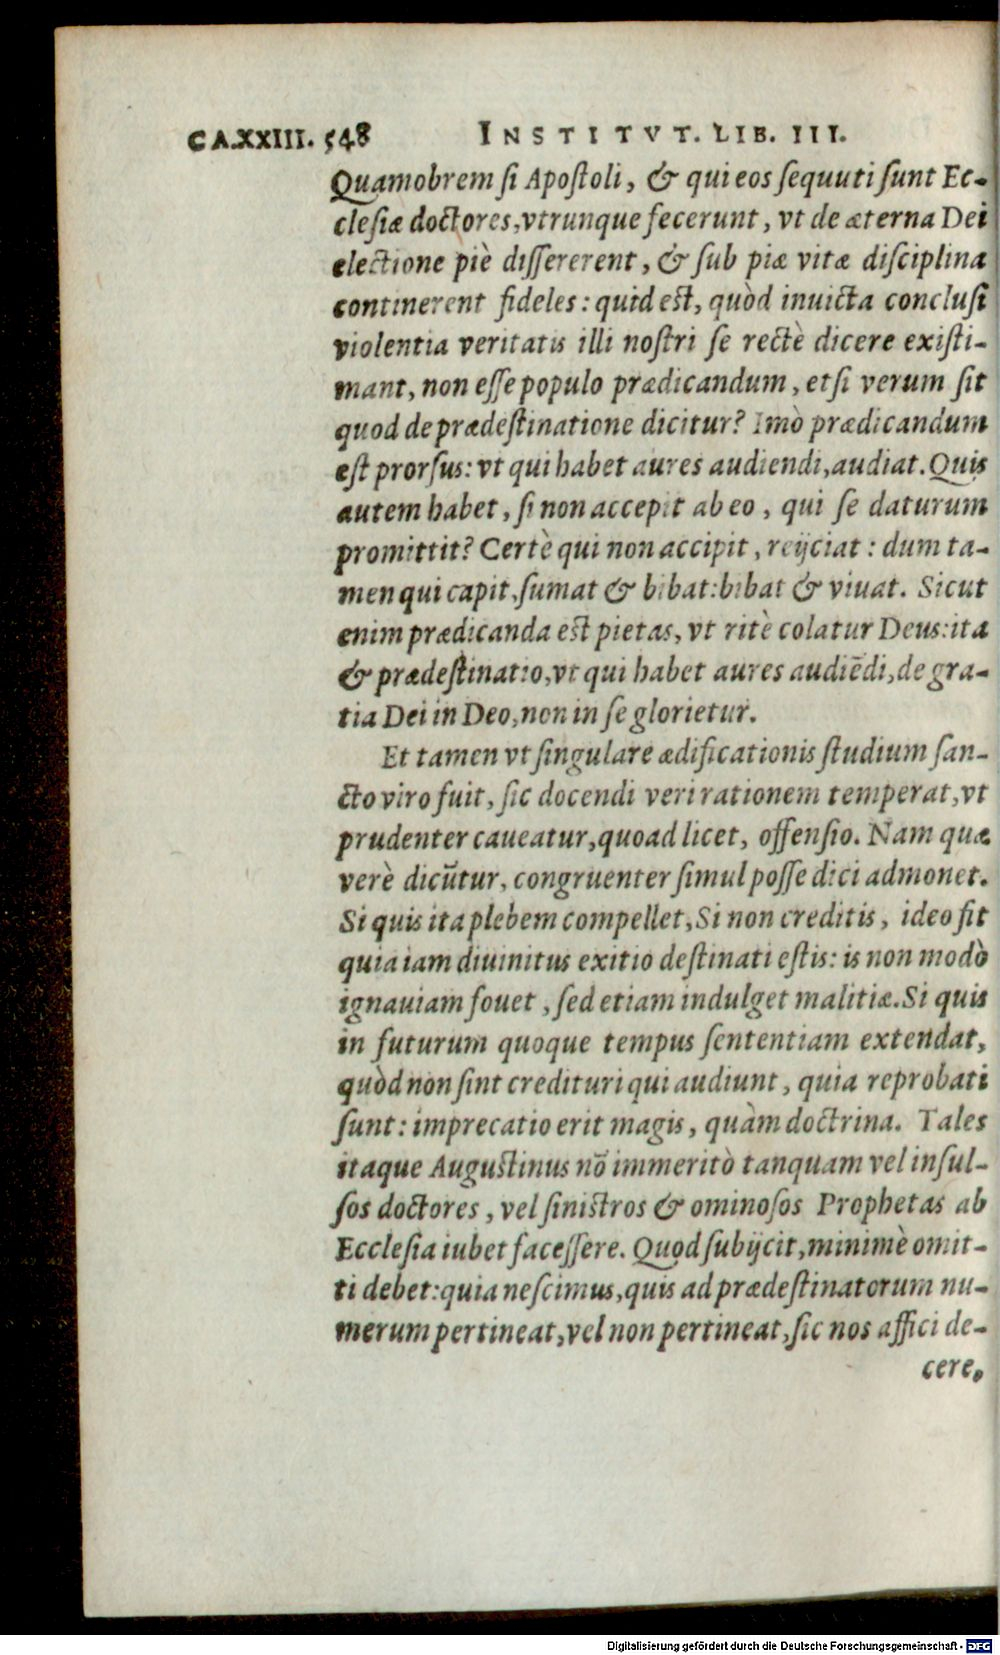 CA.XXIII. 548 INSTITVT. LIB. III.
Quamobrem si Apostoli, & qui eos sequuti sunt Ec-
clesiæ doctores, vtrunque fecerunt, vt de æterna Dei
electione piè dissererent, & sub piæ vitæ disciplina
continerent fideles: quid est, quòd inuicta conclusi
violentia veritatis illi nostri se rectè dicere existi-
mant, non esse populo prædicandum, etsi verum sit
quod de prædestinatione dicitur? Imò prædicandum
est prorsus: vt qui habet aures audiendi, audiat. Quis
autem habet, si non accepit ab eo, qui se daturum
promittit? Certè qui non accipit, reijciat: dum ta-
men qui capit, sumat & bibat: bibat & viuat. Sicut
enim prædicanda est pietas, vt ritè colatur Deus: ita
& prædestinatio, vt qui habet aures audiēdi, de gra-
tia Dei in Deo, non in se glorietur.
Et tamen vt singulare ædificationis studium san-
cto viro fuit, sic docendi veri rationem temperat, vt
prudenter caueatur, quoad licet, offensio. Nam quæ
verè dicūtur, congruenter simul posse dici admonet.
Si quis ita plebem compellet, Si non creditis, ideo fit
quia iam diuinitus exitio destinati estis: is non modò
ignauiam fouet, sed etiam indulget malitiæ. Si quis
in futurum quoque tempus sententiam extendat,
quòd non sint credituri qui audiunt, quia reprobati
sunt: imprecatio erit magis, quàm doctrina. Tales
itaque Augustinus nō immeritò tanquam vel insul-
sos doctores, vel sinistros & ominosos Prophetas ab
Ecclesia iubet facessere. Quod subijcit, minimè omit-
ti debet: quia nescimus, quis ad prædestinatorum nu-
merum pertineat, vel non pertineat, sic nos affici de-
cere,
Digitalisierung gefördert durch die Deutsche Forschungsgemeinschaft - DFG